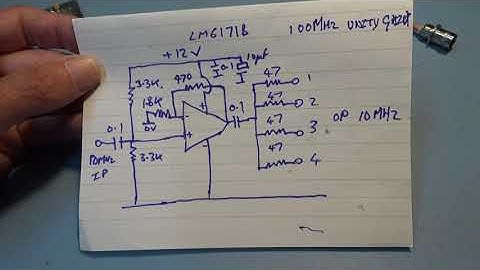 LM6171B
100MHZ UNITY GAIN
+12V
10µF
0.1
470
3.3K
1.8K
0V
-
+
0.1
0.1
10MHZ
IP
3.3K
47
1
47
2
47
3
47
4
OP 10MHZ